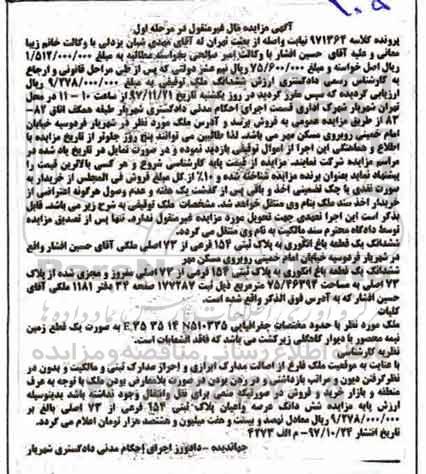 آگهی مزایده مال غیرمنقول در مرحله اول
پرونده کلاسه 971364 نیابت واصله از بعثت تهران له آقای مهدی شبان یزدلی با وکالت خانم زیبا
معانی و علیه آقای حسین افشار با وکالت امیر صالحی بخواسته مطالبه به مبلغ 1/512/000/000
ریال اصل خواسته و مبلغ 75/600/000 ریال نیم عشر دولتی که پس از طی مراحل قانونی و ارجاع
به کارشناس رسمی دادگستری ارزش ششدانگ ملک توقیفی به مبلغ 9/278/000/000 ریال
ارزیابی گردیده که سپس مقرر گردید در روز یکشنبه تاریخ 97/11/21 از ساعت 10 - 11 در محل
تهران شهریار شهرک اداری قسمت اجرای احکام مدنی دادگستری شهریار طبقه همکف اتاق 82-
83 از طریق مزایده عمومی به فروش برسد و آدرس ملک مورد نظر در شهریار فردوسیه خیابان
امام خمینی روبروی مسکن مهر می باشد. لذا طالبین می توانند پنج روز جلوتر از تاریخ مزایده با
اطلاع و هماهنگی این اجرا از اموال توقیفی بازدید نموده و در صورت تمایل در تاریخ یاد شده در
مراسم مزایده شرکت نمایند. مزایده از قیمت پایه کارشناسی شروع و هر کسی بالاترین قیمت را
پیشنهاد نماید بعنوان برنده مزایده شناخته شده و 10% از کل مبلغ فروش فی المجلس از خریدار به
صورت نقدی یا چک تضمینی اخذ و باقی پس از گذشت یک هفته و عدم وصول هرگونه اعتراضی از
خریدار اخذ سند ملک بنام وی منتقل خواهد شد. مشخصات ملک توقیفی به شرح زیر می باشد. قابل
بذکر است این اجرا تعهدی جهت تحویل مورد مزایده غیرمنقول ندارد. تنها پس از تصدیق مزایده
توسط دادگاه محترم سند مالکیت به نام وی منتقل می گردد.
ششدانگ یک قطعه باغ انگوری به پلاک ثبتی 154 فرعی از 73 اصلی ملکی آقای حسین افشار واقع
در شهریار فردوسیه خیابان امام خمینی روبروی مسکن مهر
ششدانگ یک قطعه باغ انگوری به پلاک ثبتی 154 فرعی از 73 اصلی مفروز و مجزی شده از پلاک
73 اصلی به مساحت 75/46394 مترمربع ذیل ثبت 177287 صفحه 34 دفتر 1181 ملکی آقای
حسین افشار که به آدرس فوق الذکر واقع شده است.
کلیات
ملک مورد نظر با حدود مختصات جغرافیایی N510335 E,45 35 14 به صورت یک قطع زمین
نیمه محصور با دیوار کاهگلی زیرکشت می باشد که فاقد انشعابات است.
نظریه کارشناسی
با عنایت به موقعیت ملک فارغ از اصالت مدارک ابرازی و احراز مدارک ثبتی و مالکیت و بدون در
نظرگرفتن دیون و مراتب بازداشتی و در رهن بودن در صورت بلامعارض بودن ملک با توجه به عرف
منطقه و بازار خرید و فروش در صورتیکه منعی برای نقل وانتقال وجود نداشته باشد بدینوسیله
ارزش پایه مزایده شش دانگ عرصه واعیان پلاک ثبتی 154 فرعی از 73 اصلی بالغ بر
9/278/000/000 ریال معادل نهصد و بیست و هفت میلیون و هشتصد هزار تومان اعلام می گردد.
تاریخ انتشار 97/10/24- م الف 4273
جهاندیده - دادورز اجرای احکام مدنی دادگستری شهریار